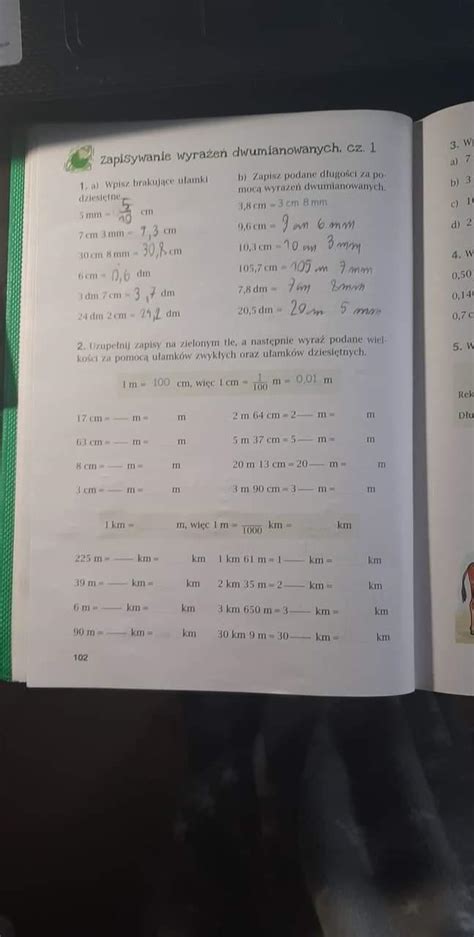 Zapisywanie wyrażeń dwumianowanych, cz. 1
1. a) Wpisz brakujące ułamki
dziesiętne.
5 mm = 5/10 cm
7 cm 3 mm = 7,3 cm
30 cm 8 mm = 30,8 cm
6 cm = 0,6 dm
3 dm 7 cm = 3,7 dm
24 dm 2 cm = 24,2 dm
b) Zapisz podane długości za po-
mocą wyrażeń dwumianowanych.
3,8 cm = 3 cm 8 mm
9,6 cm = 9 cm 6 mm
10,3 cm = 10 cm 3 mm
105,7 cm = 105 m 7 mm
7,8 dm = 7 8 mm
20,5 dm = 20 m 5 mm
2. Uzupełnij zapisy na zielonym tle, a następnie wyraź podane wiel-
kości za pomocą ułamków zwykłych oraz ułamków dziesiętnych.
1 m = 100 cm, więc 1 cm = 1/100 m = 0,01 m
17 cm = — m = m 2 m 64 cm = 2— m = m
63 cm = — m = m 5 m 37 cm = 5— m = m
8 cm = — m = m 20 m 13 cm = 20— m = m
3 cm = — m = m 3 m 90 cm = 3— m = m
1 km = m, więc 1 m = /1000 km = km
225 m = — km = km 1 km 61 m = 1— km = km
39 m = — km = km 2 km 35 m = 2— km = km
6 m = — km = km 3 km 650 m = 3— km = km
90 m = — km = km 30 km 9 m = 30— km = km
102
3. W
a) 7
b) 3
c)
d) 2
4. W
0,50
0,14
0,7 c
5. W
Rek
Dłu